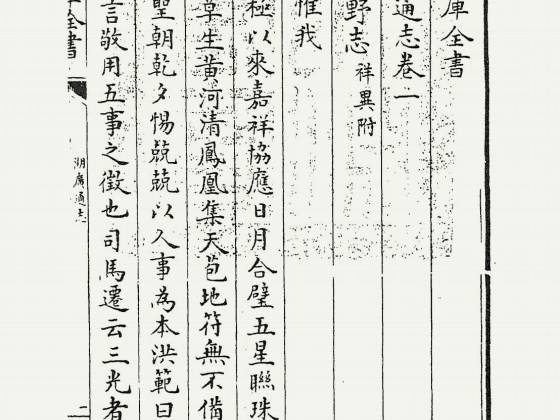 庫全書
通志卷一
野志祥異附
惟我
極以來嘉祥協應日月合璧五星聯珠
草生黄河清鳳凰集天苞地符無不備
聖朝乾夕惕兢兢以人事為本洪範曰
言敬用五事之徵也司馬遷云三光者
全書
湖廣通志
二